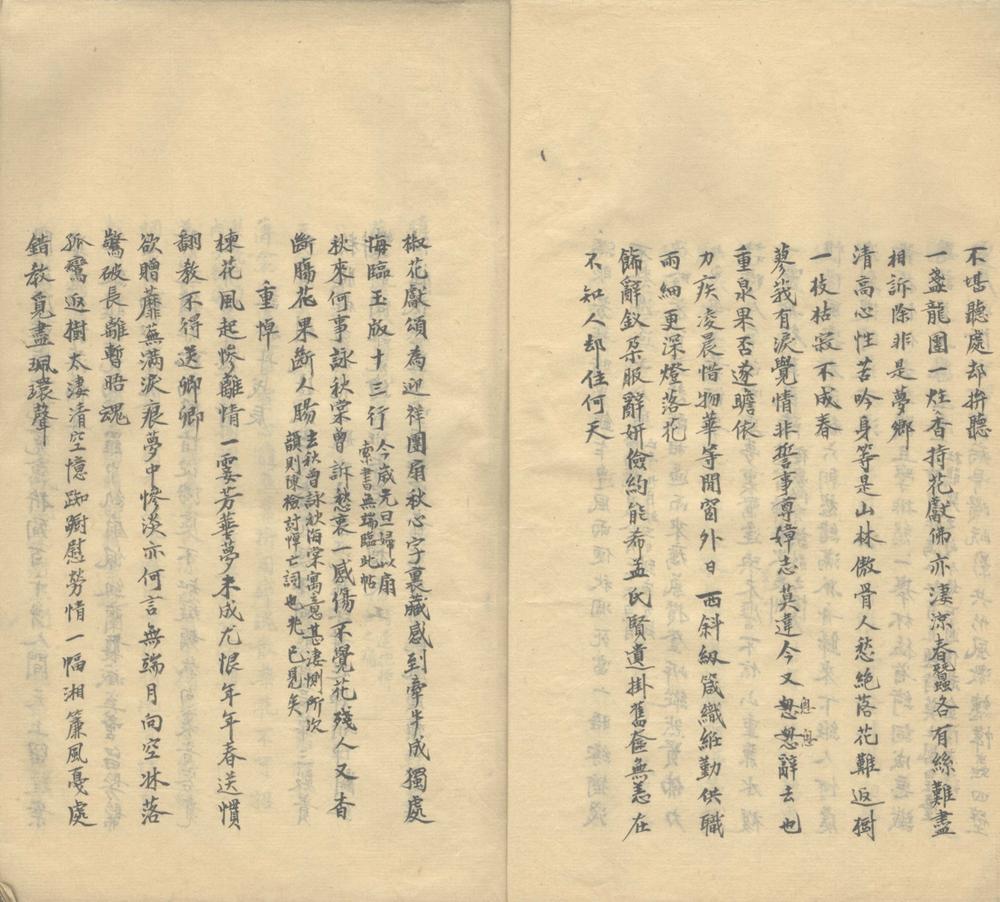 不堪聽處却拚聽
一盞龍團一炷香持花獻佛亦淒涼春蠶各有絲難盡
相訴除非是夢鄉
清高心性苦吟身等是山林傲骨人愁絶落花難返樹
一枝枯寂不成春
蓼莪有淚覺情非誓事尊嫜志莫違今又怱怱辭去也
重泉果否遂瞻依
力疾凌晨惜物華等閒窗外日西斜紉箴織絍勤供職
雨細更深燈落花
飾辭釵朶服辭妍儉約能希孟氏賢遺掛舊奩無恙在
不知人却住何天
椒花獻頌為迎祥團扇秋心字裏藏感到牽牛成獨處
悔臨玉版十三行今歲元旦歸以扇索書無端臨此帖
秋來何事詠秋棠曾訴愁衷一感傷不覺花殘人又香
斷膓花果斷人膓去秋曾詠秋海棠寓意甚淒惻所次韻則陳檢討悼亡詞也兆已見矣
重悼
楝花風起慘離情一霎芳華夢未成尤恨年年春送慣
翻教不得送卿卿
欲贈蘼蕪滿淚痕夢中慘淡亦何言無端月向空牀落
驚破長離暫晤魂
孤鸞返樹太淒清空憶踟躕慰勞情一幅湘簾風戛處
錯教覓盡珮環聲